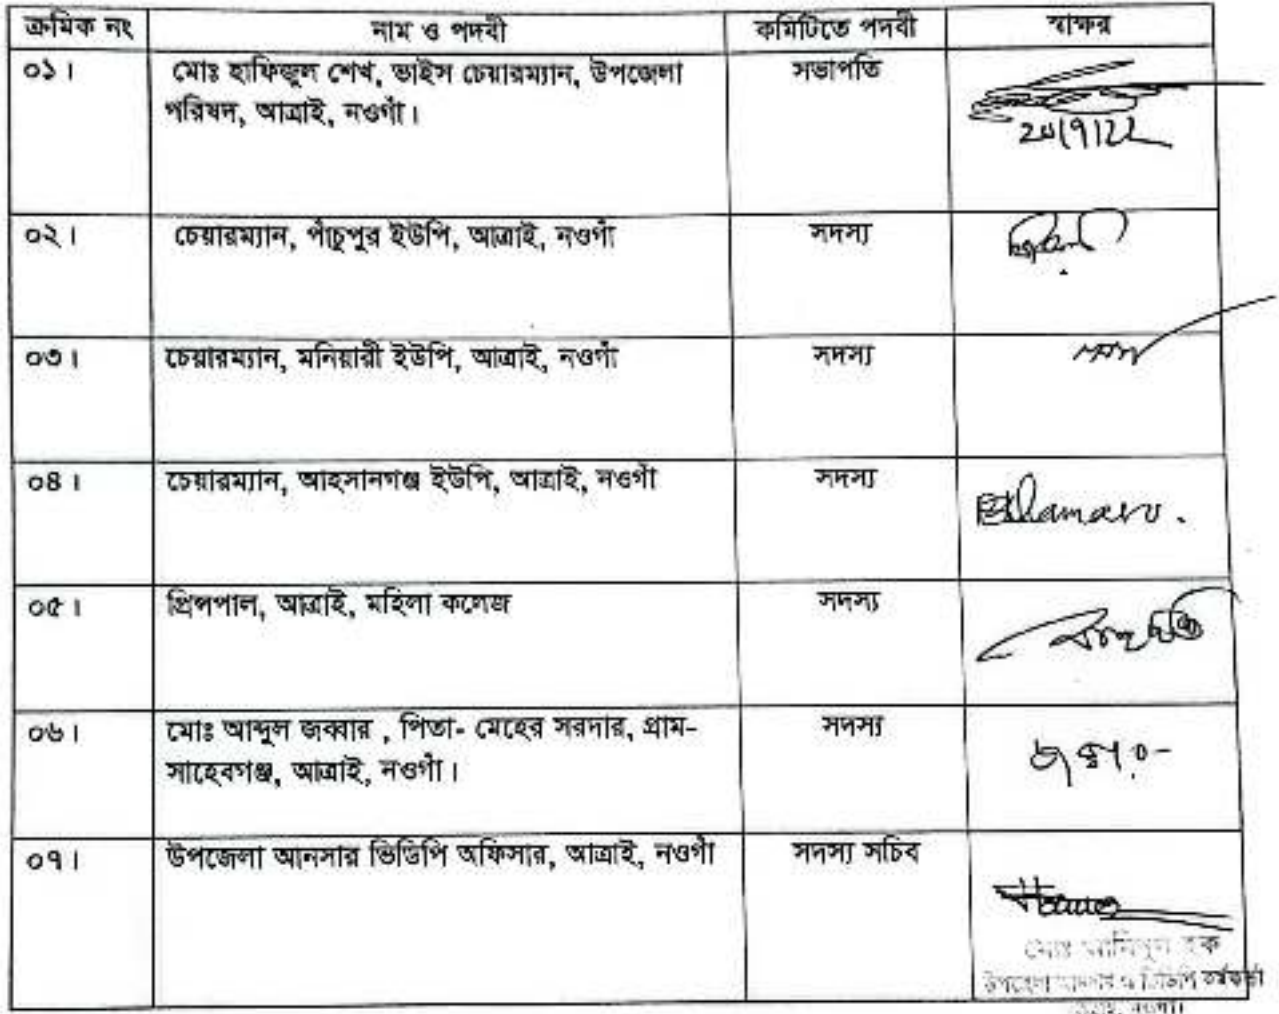 ক্রমিক নং নাম ও পদবী কমিটিতে পদবী স্বাক্ষর
০১। মোঃ হাফিজুল শেখ, ভাইস চেয়ারম্যান, উপজেলা সভাপতি
পরিষদ, আত্রাই, নওগাঁ।
০২। চেয়ারম্যান, পাঁচুপুর ইউপি, আত্রাই, নওগাঁ সদস্য
০৩। চেয়ারম্যান, মনিয়ারী ইউপি, আত্রাই, নওগাঁ সদস্য
০৪। চেয়ারম্যান, আহসানগঞ্জ ইউপি, আত্রাই, নওগাঁ সদস্য
০৫। প্রিন্সপাল, আত্রাই, মহিলা কলেজ সদস্য
০৬। মোঃ আব্দুল জব্বার , পিতা- মেহের সরদার, গ্রাম- সদস্য
সাহেবগঞ্জ, আত্রাই, নওগাঁ।
০৭। উপজেলা আনসার ভিডিপি অফিসার, আত্রাই, নওগাঁ সদস্য সচিব
মোঃ হক
উপজেলা ভিডিপি কর্মকর্তা